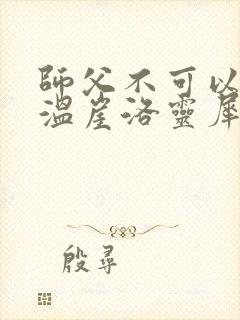 師父不可以
溫崖洛靈犀
殷尋